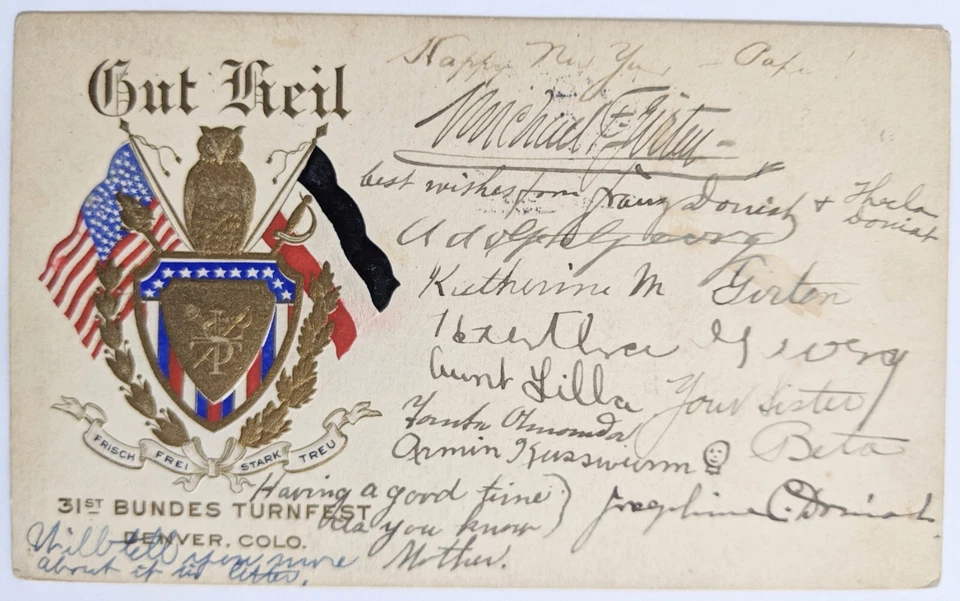 Gut Heil
FRISCH FREI STARK TREU
31ST BUNDES TURNFEST
DENVER, COLO.
Happy New Year - Papa!
Michael F. Girten
best wishes from Franz Doniat & Thecla Doniat
Adolph Georg
Katherine M Girten
Georg
Aunt Lilla
Your Sister
Beta
Armin Kusswurm
Josephine C. Doniat
Having a good time
as you know
Mother.
Will tell you more
about it in letter.